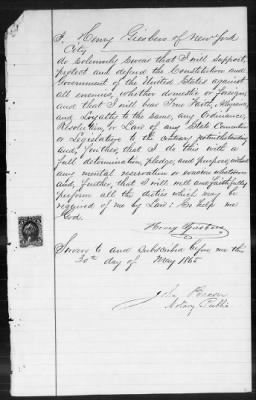 I, Henry Giesbers of New York
City
do solemnly swear that I will support,
protect and defend the Constitution and
Government of the United States against
all enemies, whether domestic or foreign,
and that I will bear True Faith, Allegiance,
and Loyalty to the same, any Ordinance,
Resolution, or Law of any State Convention
or Legislature to the contrary notwithstanding
and, further, that I do this with a
full determination, pledge, and purpose, without
any mental reservation or evasion whatsoever
and, further, that I will well and faithfully
perform all the duties which may be
required of me by Law: So help me
God.
Henry Giesbers
Sworn to and subscribed before me this
30th day of May 1865
John
Notary Public